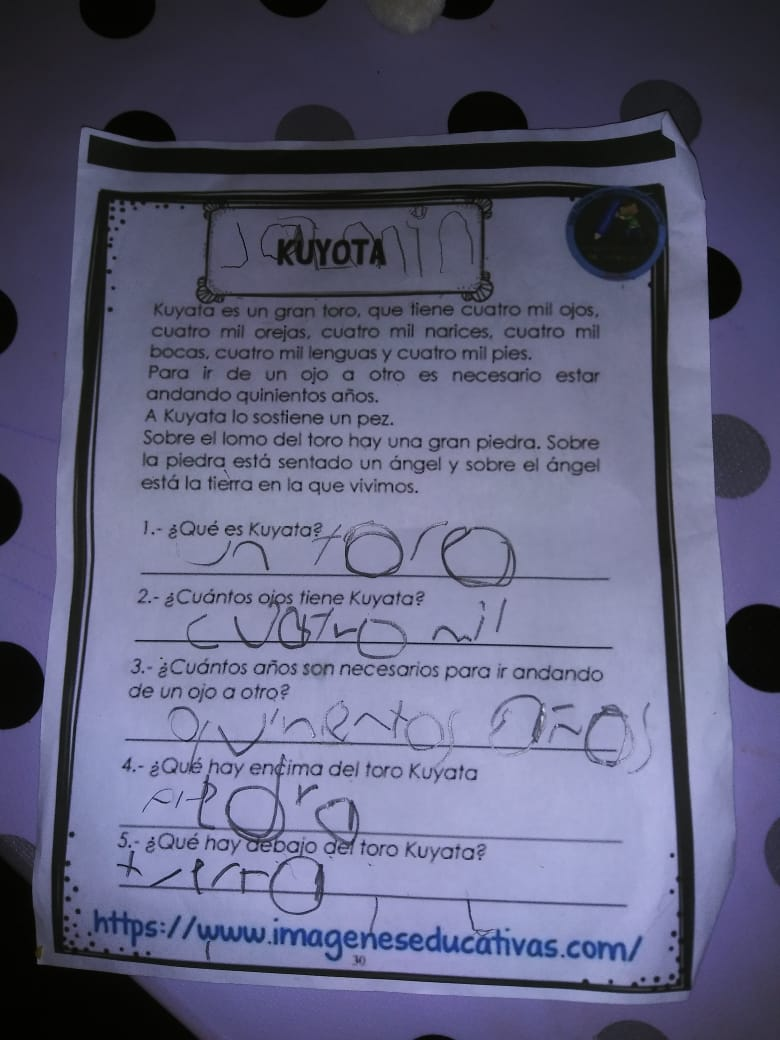 KUYOTA
Kuyata es un gran toro, que tiene cuatro mil ojos,
cuatro mil orejas, cuatro mil narices, cuatro mil
bocas, cuatro mil lenguas y cuatro mil pies.
Para ir de un ojo a otro es necesario estar
andando quinientos años.
A Kuyata lo sostiene un pez.
Sobre el lomo del toro hay una gran piedra. Sobre
la piedra está sentado un ángel y sobre el ángel
está la tierra en la que vivimos.
1.- ¿Qué es Kuyata?
un toro
2.- ¿Cuántos ojos tiene Kuyata?
cuatro mil
3.- ¿Cuántos años son necesarios para ir andando
de un ojo a otro?
años
4.- ¿Qué hay encima del toro Kuyata
piedra
5.- ¿Qué hay debajo del toro Kuyata?
https://www.imageneseducativas.com/
30